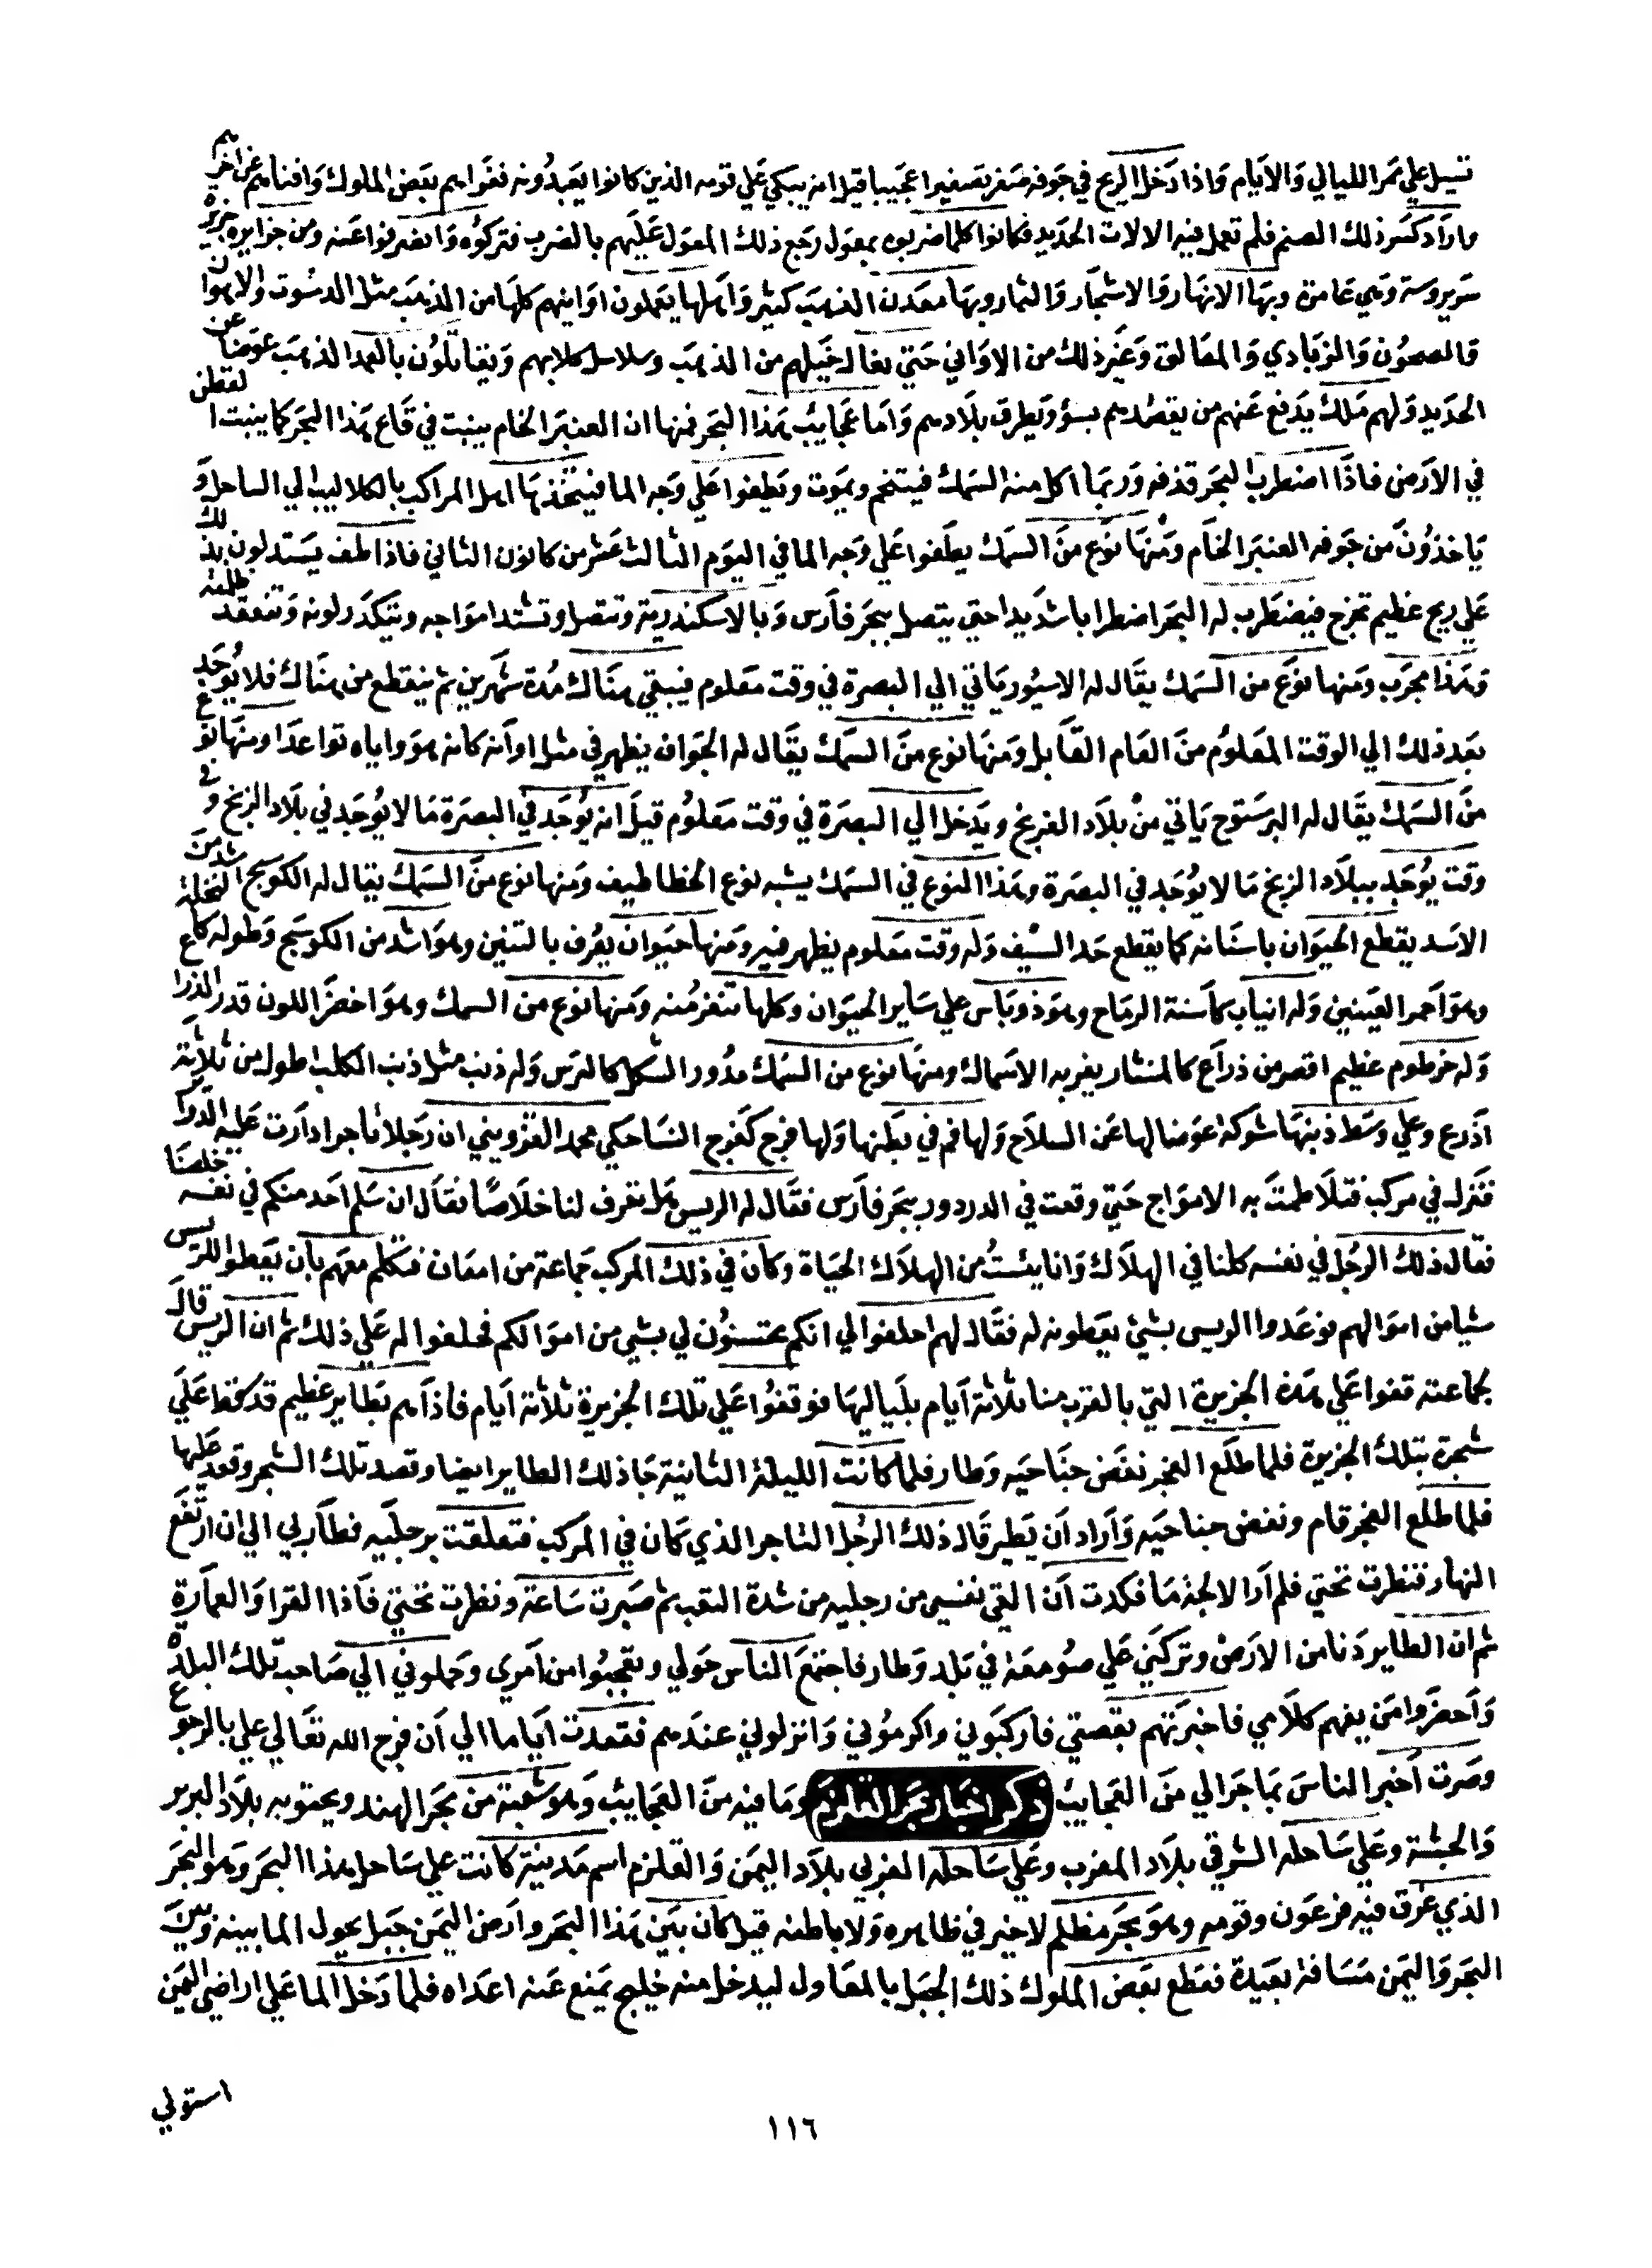 تسيل علي ممر الليالي والايام واذا دخل الريح في جوفه صفر تصفيرا عجيبا قيل انه يبكي علي قومه الذين كانوا يعبدونه فغزاهم بعض الملوك وافناهم عن اخرهم
واراد كسر ذلك الصنم فلم تعمل فيه الالات الحديد فكانوا كلما ضربوه بمعول رجع ذلك المعول عليهم بالضرب فتركوه وانصرفوا عنه ومن جزايره جزيرة
سريروسة وهي عامرة وبها الانهار والاشجار والثمار وبها معدن الذهب كثير واهلها يعملون اوانيهم كلها من الذهب مثل الدسوت والاهوان
والصحون والزبادي والمعالق وغير ذلك من الاواني حتي نعال خيلهم من الذهب وسلاسل كلابهم ويقاتلون بالعمد الذهب عوضا عن
الحديد ولهم ملك يدفع عنهم من يقصدهم بسؤ ويطرق بلادهم واما عجايب هذا البحر فمنها ان العنبر الخام ينبت في قاع هذا البحر كما ينبت القطن
في الارض فاذا اضطرب البحر قذفه وربما اكل منه السمك فيتخم ويموت ويطفوا علي وجه الما فيتخذها اهل المراكب بالكلاليب الي الساحل و
ياخذون من جوفه العنبر الخام ومنها نوع من السمك يطفوا علي وجه الما في اليوم الثالث عشر من كانون الثاني فاذا طف يستدلون بذلك
علي ريح عظيم تخرج فيضطرب له البحر اضطرابا شديدا حتي يتصل ببحر فارس وبالاسكندرية وتتصل وتشتد امواجه ويتكدر لونه وتنعقد ظلمته
وهذا مجرب ومنها نوع من السمك يقال له الاسيور ياتي الي البصرة في وقت معلوم فيبقي هناك مدة شهرين ثم ينقطع من هناك فلا يوجد
بعد ذلك الي الوقت المعلوم من العام القابل ومنها نوع من السمك يقال له الجوان يظهر في مثل اوانه كانه هو واياه تواعدا ومنها نوع
من السمك يقال له البرستوج ياتي من بلاد الفرنج ويدخل الي البصرة في وقت معلوم قيل انه يوجد في البصرة ما لا يوجد في بلاد الزنج وفي
وقت يوجد ببلاد الزنج ما لا يوجد في البصرة وهذا النوع في السمك يشبه نوع الخطاطيف ومنها نوع من السمك يقال له الكوسج اشد من
الاسد يقطع الحيوان باسنانه كما يقطع حد السيف وله وقت معلوم يظهر فيه ومنها حيوان يعرف بالتنين وهو اشد من الكوسج وطوله كالنخلة
وهو احمر العينين وله انياب كاسنة الرماح وهو ذو باس علي ساير الحيوان وكلها تنفر منه ومنها نوع من السمك وهو اخضر اللون قدر الذراع
وله خرطوم عظيم اقصر من ذراع كالمنشار يضرب به الاسماك ومنها نوع من السمك مدور الشكل كالترس وله ذنب مثل ذنب الكلب اطول من ثلاثة
اذرع وعلي وسط ذنبها شوكة عوضا لها عن السلاح ولها فم في بطنها ولها فرج كفرج النسا حكي محمد القزويني ان رجلا تاجرا دارت عليه الدوائر
فنزل في مركب فتلاطمت به الامواج حتي وقعت في الدردور ببحر فارس فقال له الريس هل تعرف لنا خلاصا فقال ان سلم احد منكم في نفسه خلصنا
فقال ذلك الرجل في نفسه كلنا في الهلاك وانا يئست من الهلاك الحياة وكان في ذلك المركب جماعة من امعان فتكلم معهم بان يعطوا للريس
شيا من اموالهم فوعدوا الريس بشئ يعطونه له فقال لهم احلفوا لي انكم تحسنون لي بشي من اموالكم فحلفوا له علي ذلك ثم ان الريس قال
لجماعته قفوا علي هذه الجزيرة التي بالقرب منا ثلاثة ايام بلياليها فوقفوا علي تلك الجزيرة ثلاثة ايام فاذا هم بطاير عظيم قد حط علي
شجرة بتلك الجزيرة فلما طلع الفجر نفض جناحيه وطار فلما كانت الليلة الثانية جا ذلك الطاير ايضا وقصد تلك الشجر وقعد عليها
فلما طلع الفجر قام ونفض جناحيه واراد ان يطير قال ذلك الرجل التاجر الذي كان في المركب فتعلقت برجليه فطار بي الي ان ارتفع
النهار فنظرت تحتي فلم ار الا لجة ما فكدت ان القي نفسي من رجليه من شدة التعب ثم صبرت ساعة ونظرت تحتي فاذا القرا والعمارة
ثم ان الطاير دنا من الارض وتركني علي صومعة في بلد وطار فاجتمع الناس حولي وتعجبوا من امري وحملوني الي صاحب تلك البلدة
واحضروا من يفهم كلامي فاخبرتهم بقصتي فاركبوني واكرموني وانزلوني عندهم فقعدت اياما الي ان فرج الله تعالي علي بالرجوع
وصرت اخبر الناس بما جرا لي من العجايب ذكر اخبار بحر القلزم وما فيه من العجايب وهو شعبة من بحر الهند ويحتو به بلاد البربر
والحبشة وعلي ساحله الشرقي بلاد المغرب وعلي ساحله الغربي بلاد اليمن والقلزم اسم مدينة كانت علي ساحل هذا البحر وهو البحر
الذي غرق فيه فرعون وقومه وهو بحر مظلم لا خير في ظاهره ولا باطنه قيل كان بين هذا البحر وارض اليمن جبل يحول الما بينه وبين
البحر واليمن مسافة بعيدة فقطع بعض الملوك ذلك الجبل بالمعاول ليدخل منه خليج يمنع عنه اعداه فلما دخل الما علي اراضي اليمن
استولي
١١٦